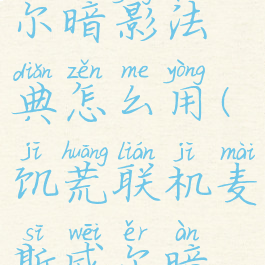 尔暗影法
diǎn zěn me yòng
典怎么用(
jī huāng lián jī mài
饥荒联机麦
sī wēi ěr àn
斯威尔暗